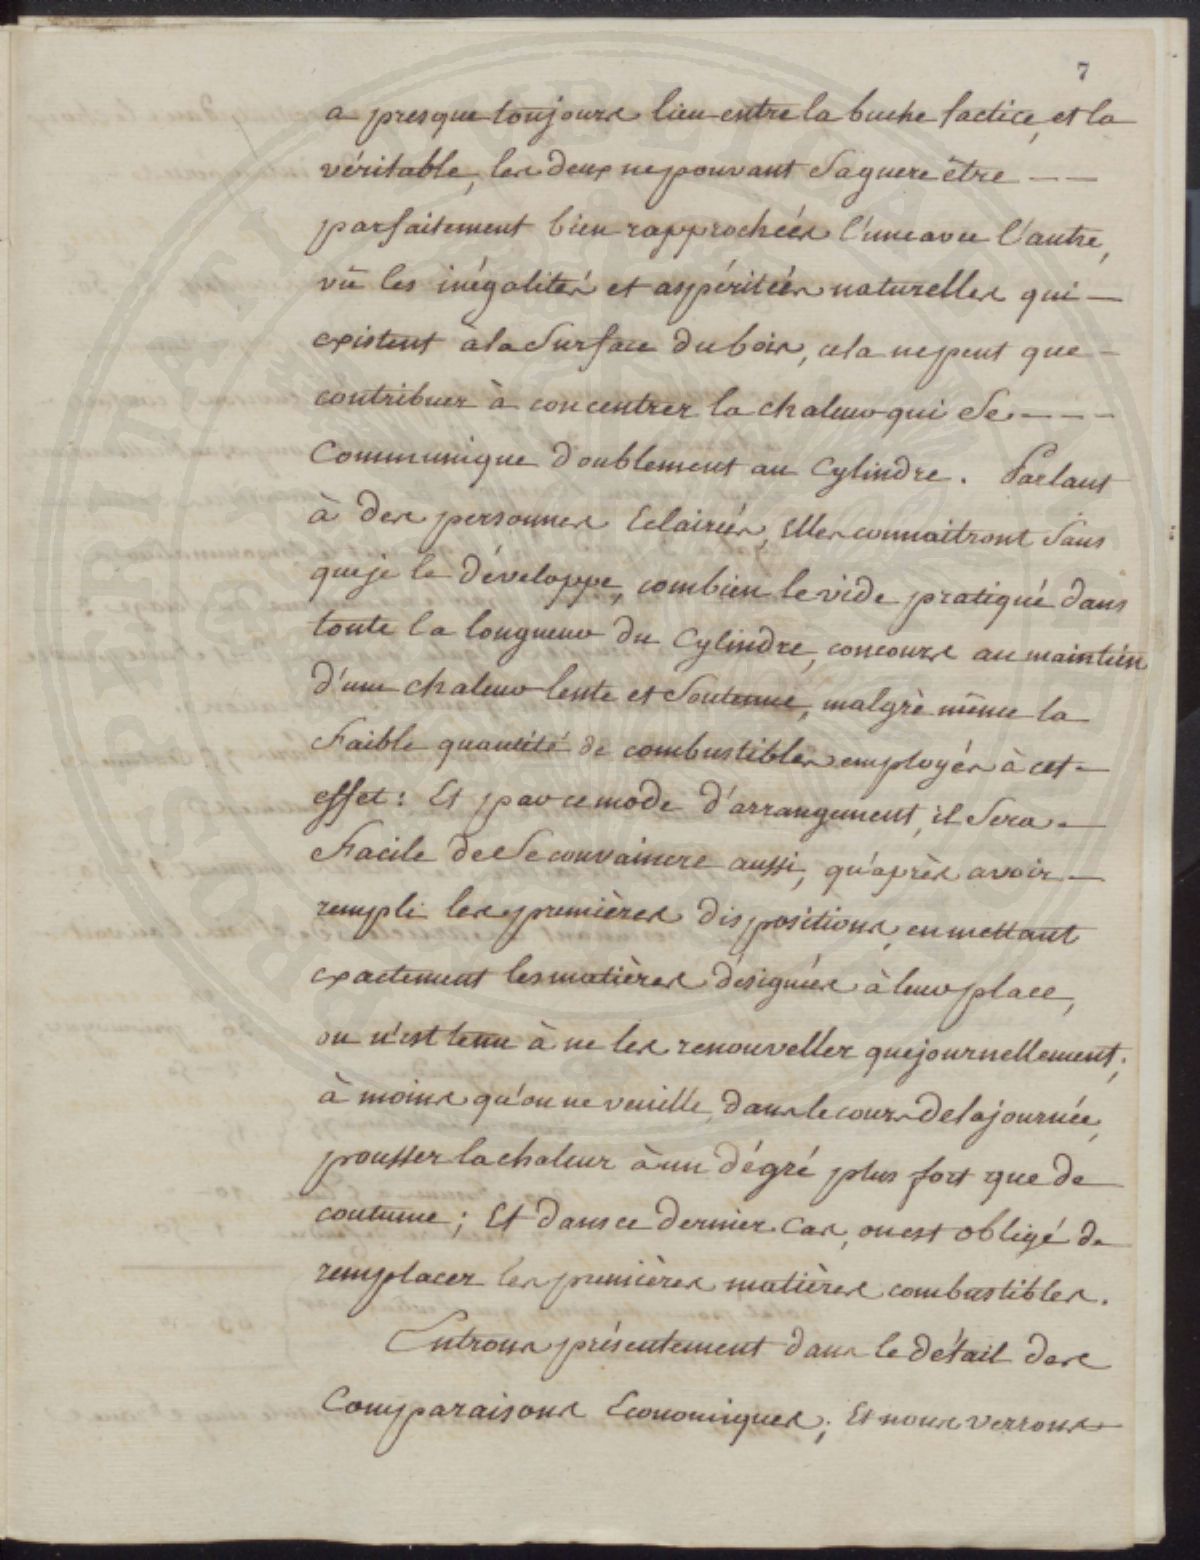 7
a presque toujours lieu entre la buche factice, et la
véritable, les deux ne pouvant Saguere être — —
parfaitement bien rapprochées l'une avec l'autre,
vû les inégalités et aspéritées naturelles qui —
existent à la Surface du bois, cela ne peut que —
contribuer à concentrer la chaleur qui Se — — —
Communique doublement au Cylindre. Parlant
à des personnes Eclairées, Elles connaitront Sans
que je le développe, combien le vide pratiqué dans
toute la longueur du Cylindre, concours au maintien
d'une chaleur lente et Soutenue, malgrè même la
Faible quantité de combustibles employés à cet —
effet : Et par ce mode d'arrangement, il Sera —
Facile de Se convaincre aussi, qu'après avoir —
rempli les premières dispositions, en mettant
exactement les matières désignées à leur place,
on n'est tenu à ne les renouveller que journellement ;
à moins qu'on ne veuille, dans le cours de la journée,
pousser la chaleur à un dégré plus fort que de
coutume ; Et dans ce dernier Cas, on est obligé de
remplacer les premières matières combustibles.
Entrons présentement dans le détail des
Comparaisons Economiques ; Et nous verrons